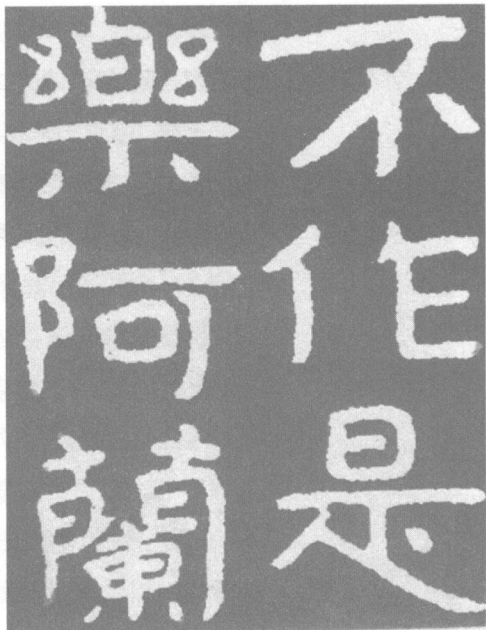 不作是
樂阿蘭